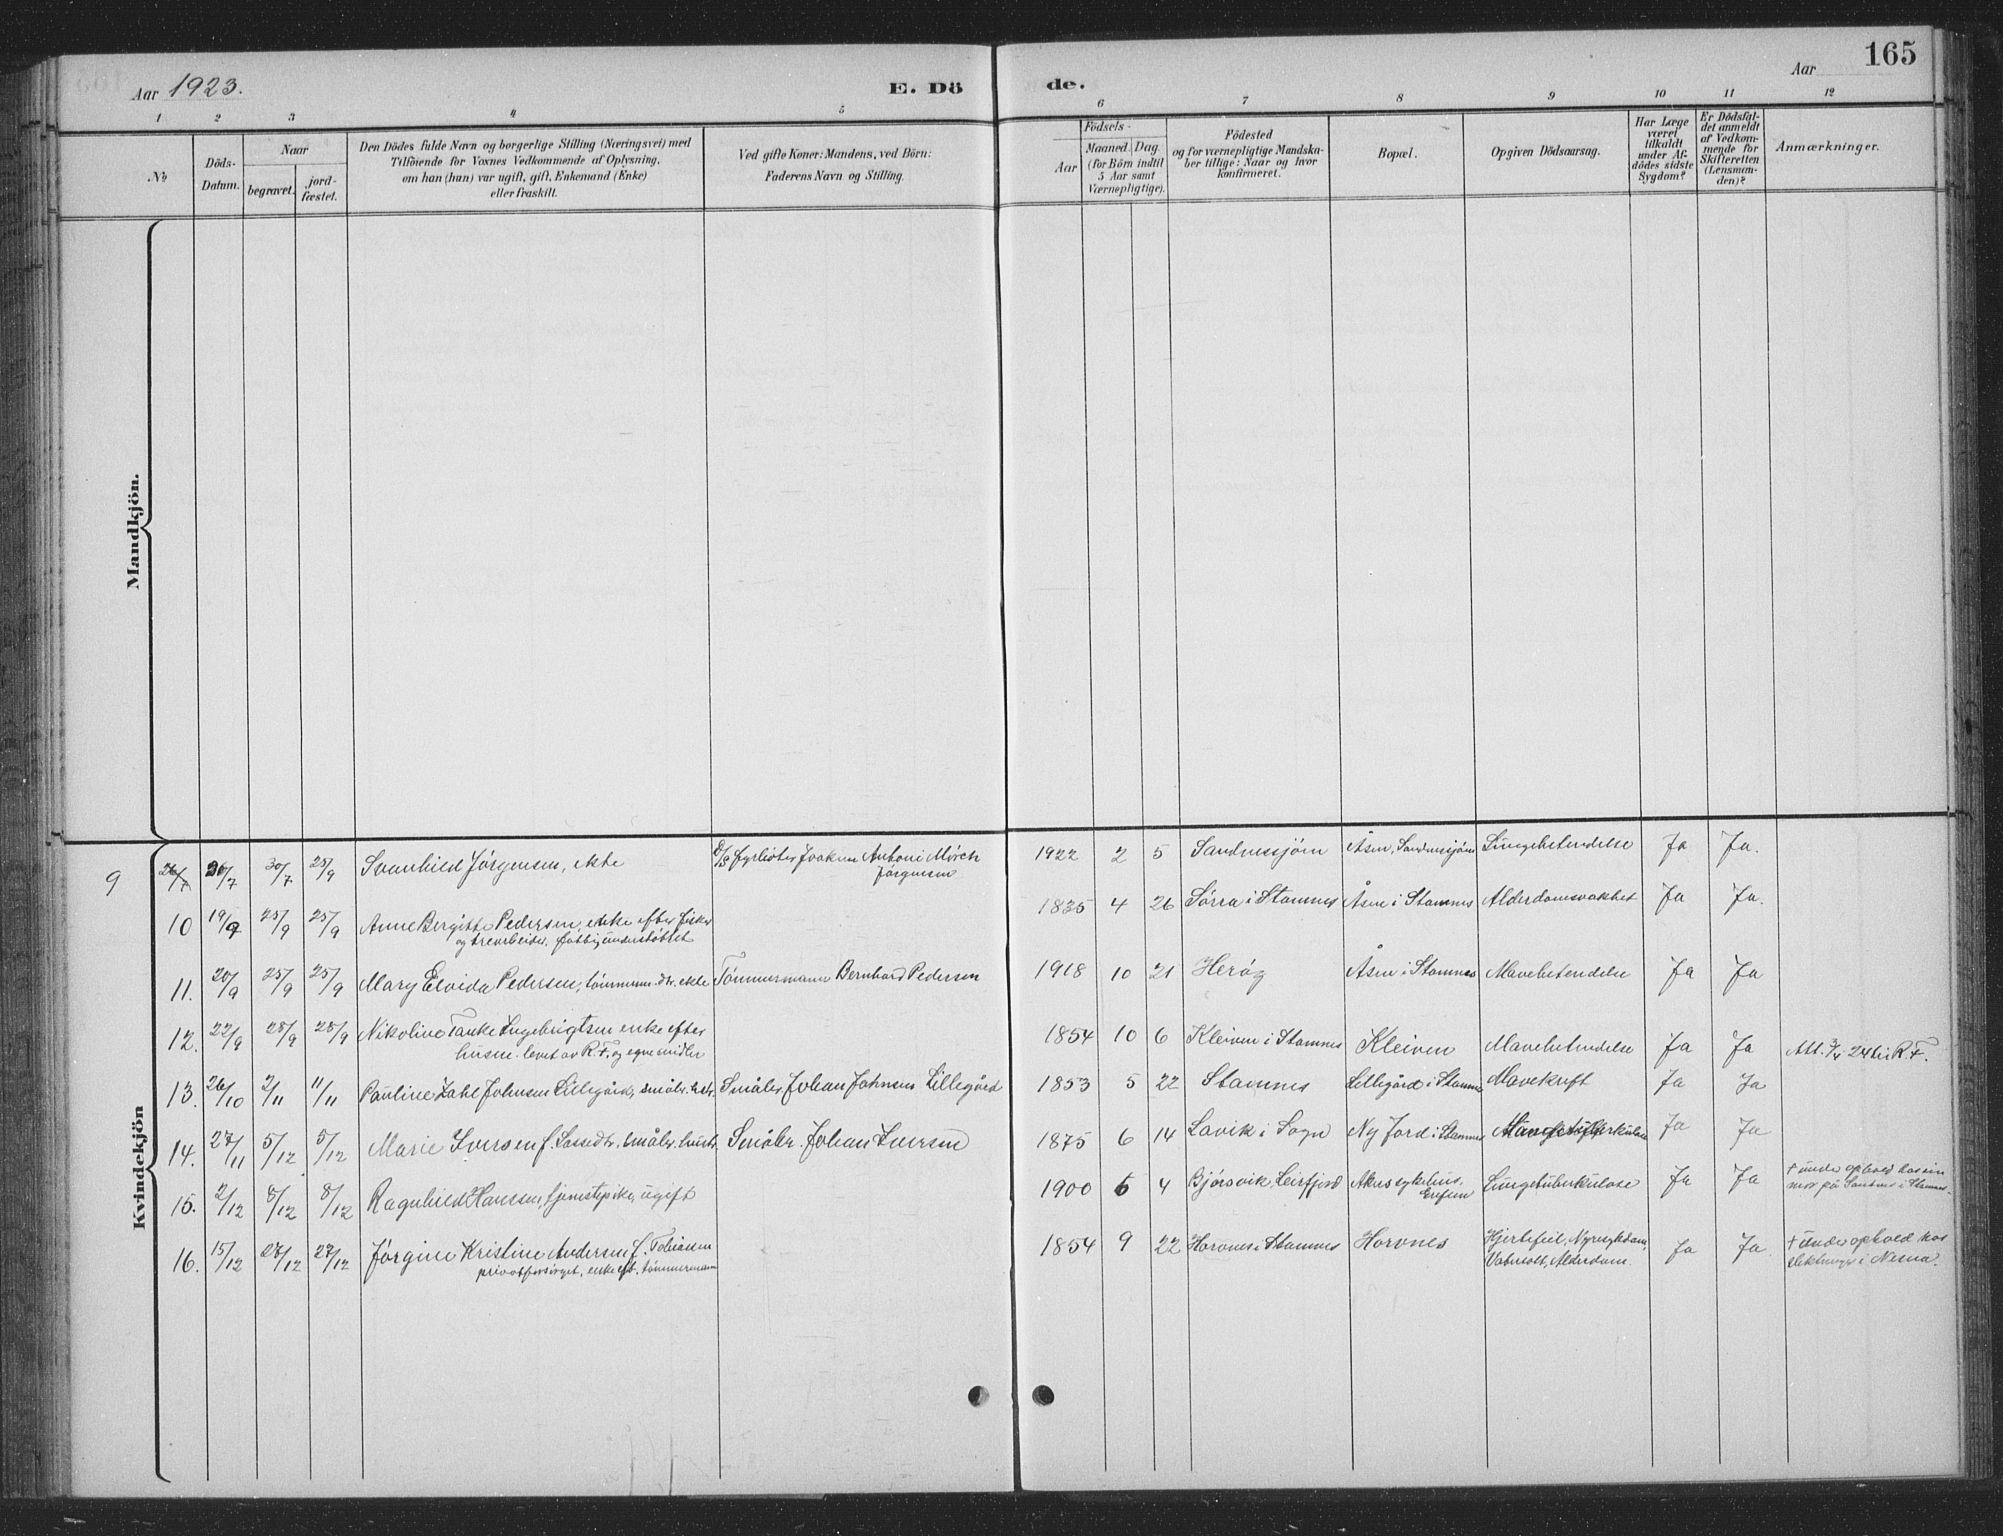 165
Aar 1923.
E. Dö
de.
Aar
1 2 3 4 5 6 7 8 9 10 11 12
No
Döds-
Datum.
Naar
begravet.
jord-
fæstet.
Den Dödes fulde Navn og borgerlige Stilling (Næringsvei) med
Tilföiende for Voxnes Vedkommende af Oplysning,
om han (hun) var ugift, gift, Enkemand (Enke)
eller fraskilt.
Ved gifte Koner: Mandens, ved Börn:
Faderens Navn og Stilling.
Födsels-
Aar
Maaned. Dag.
(for Börn indtil
5 Aar samt
Værnepligtige).
Födested
og for værnepligtige Mandska-
ber tillige: Naar og hvor
konfirmeret.
Bopæl.
Opgiven Dödsaarsag.
Har Læge
været
tilkaldt
under Af-
dödes sidste
Sygdom?
Er Dödsfal-
det anmeldt
af Vedkom-
mende for
Skifteretten
(Lensman-
den)?
Anmærkninger.
Mandkjön.
Kvindekjön
9 26/7 30/7 25/9 Svanhild Jørgensen, ekte Joakim Antoni Mörch 1922 2 5 Sandnessjøen Åsen, Sandnessjøen Lungebetendelse Ja Ja.
Jørgensen
10 19/9 25/9 25/9 Anne Bergitte Pedersen, enke efter fisker 1835 4 26 Sørra i Stamnes Åsen i Stamnes Alderdomsvakhet Ja Ja.
og trearbeider, fattigunderstøttet
11. 20/9 25/9 25/9 Mary Elvida Pedersen, tømmerm. dtr. ekte Tømmermann Bernhard Pedersen 1918 10 21 Herøy Åsen i Stamnes Mavebetendelse Ja Ja
12. 22/9 28/9 28/9 Nikoline Tanke Ingebrigtsen enke efter 1854 10 6 Kleiven i Stamnes Kleiven Mavebetendelse Ja Ja Att. 3/4 24 til R.F.
husm. levet av R.F. og egne midler
13. 26/10 2/11 11/11 Pauline Zahl Johnsen Lillegård, småbr. hstr. Småbr. Johan Johnsen Lillegård 1853 5 22 Stamnes Lillegård i Stamnes Mavekreft Ja Ja
14. 27/11 5/12 5/12 Marie Iversen f. Lassedtr. småbr. hustr. Småbr. Johan Iversen 1875 6 14 Lavik i Sogn Ny Jord i Stamnes Ja Ja
15. 2/12 8/12 8/12 Ragnhild Hanssen, tjenestepike, ugift 1900 6 4 Bjørsvik, Leirfjord Akers sykehus, Lungetuberkulose Ja Ja † under ophold hos sin
mor på Sandnes i Stamnes.
16. 15/12 27/12 27/12 Jørgine Kristine Andersen f. Tobiassen 1854 9 22 Horvnes i Stamnes Horvnes Hjertefeil, Nyresykdom, Ja Ja. † under ophold hos
privatforsørget, enke eft. tømmermann Vatersott, Alderdom. slektninger i Nesna.